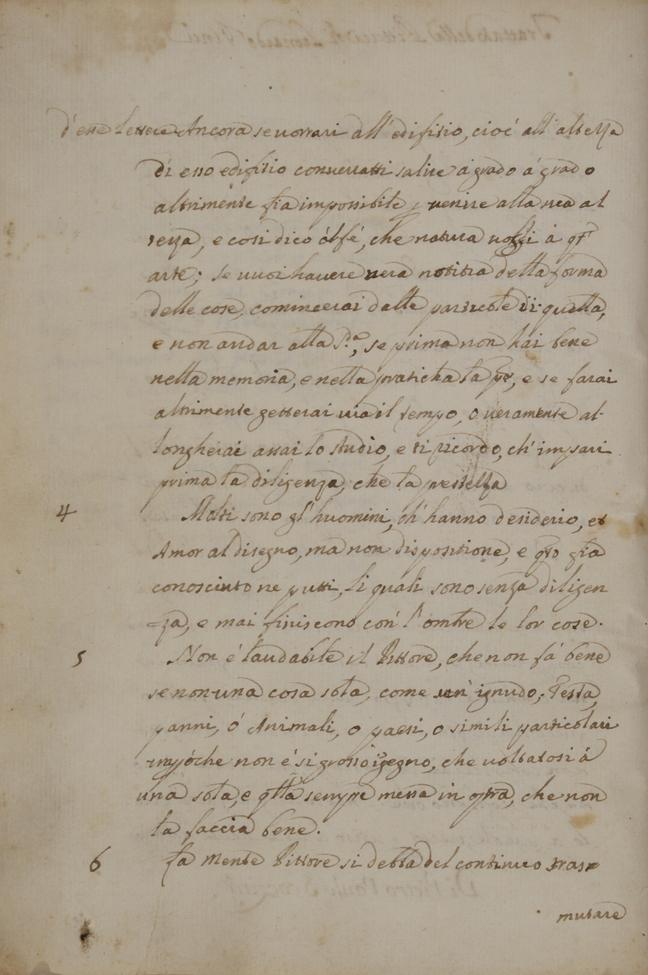 d'esse lettere Ancora se vorrai all'edifitio, cioè all'altezza
di esso edifitio converratti salire à grado à grado
altrimente fia impossibile venire alla sua al
tezza, e così dico à te, che natura à qta
arte; se vuoi havere vera notitia della forma
delle cose comincerai dalle particole di quella,
e non andar alla 2.a, se prima non hai bene
nella memoria, e nella praticha la pa, e se farai
altrimente getterai via il tempo, o veramente al
longherai assai lo studio, e ti ricordo, ch'impari
prima la diligenza, che la prestezza
4 Molti sono gl'huomini, ch'hanno desiderio, et
Amor al disegno, ma non dispositione, e qto fia
conosciuto ne putti, li quali sono senza diligen
=za, e mai finiscono con l'ombre le lor cose.
5 Non è laudabile il Pittore, che non fà bene
se non una cosa sola, come un ignudo, Testa,
panni, ò Animali, o paesi, o simili particolari
impoche non è si grosso igegno, che voltatosi à
una sola, e qlla sempre messa in opra, che non
la faccia bene.
6 La mente Pittore si debba del continuo tras=
mutare